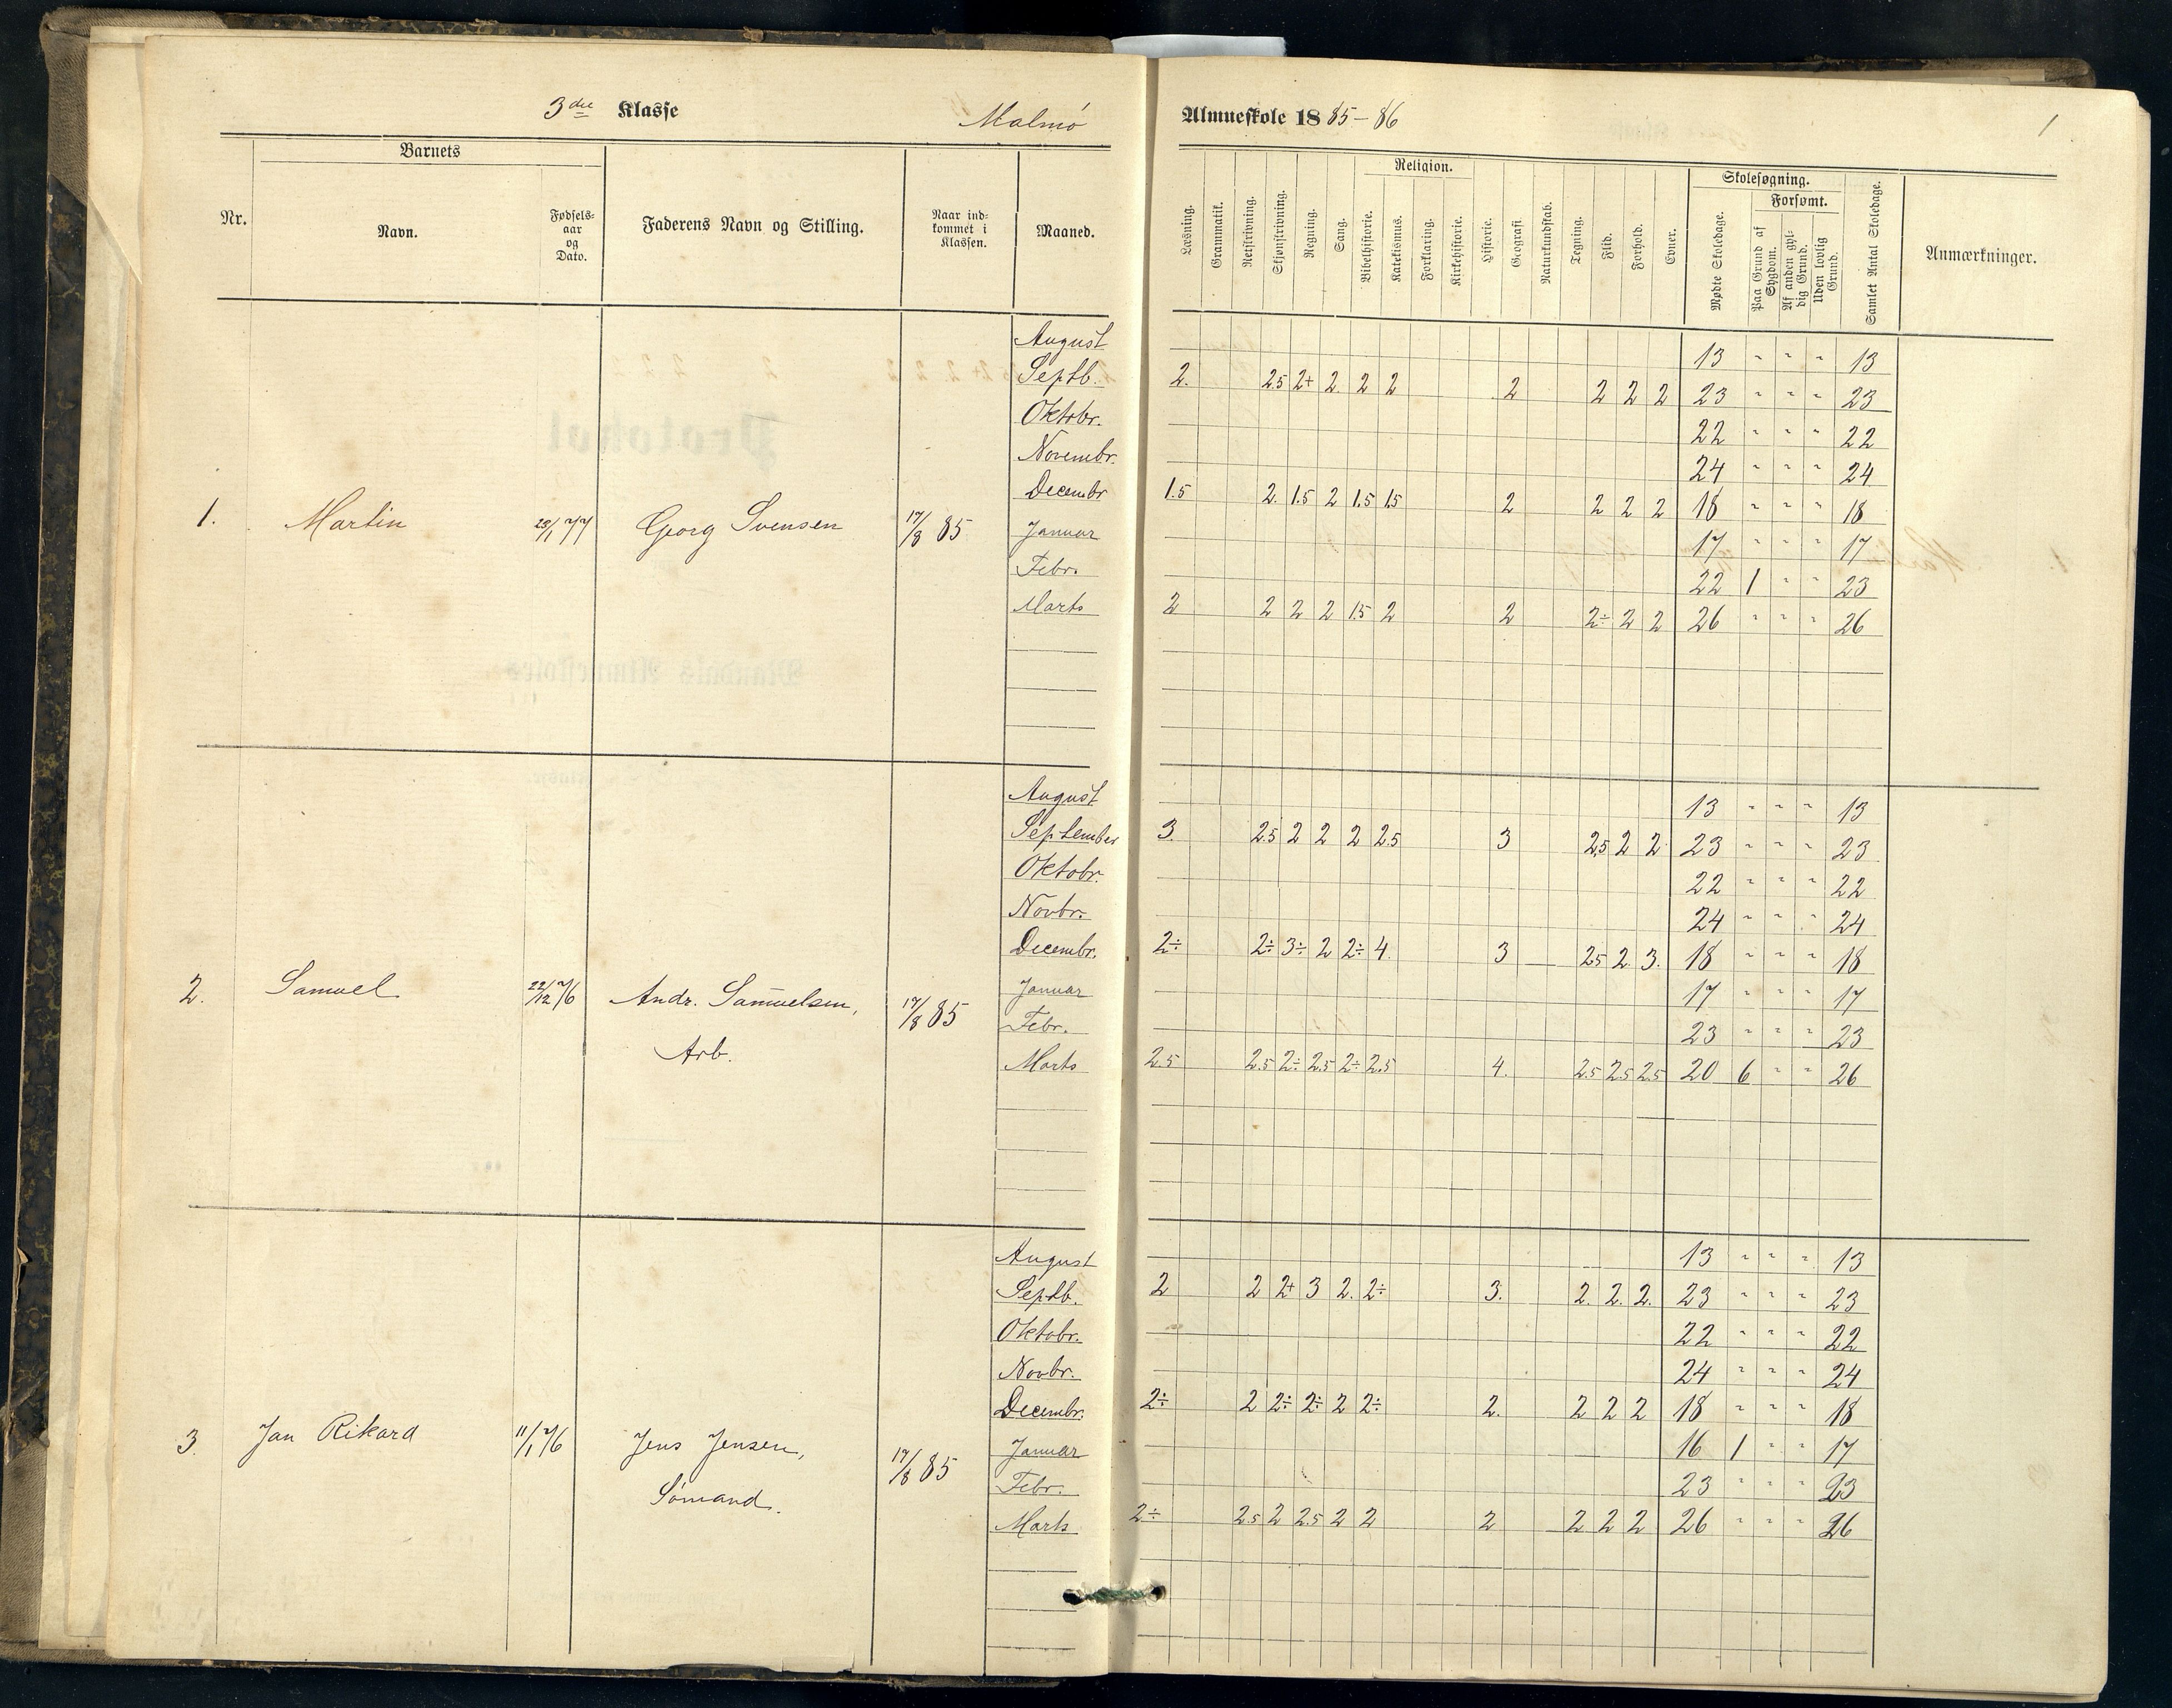 3die Klasse Malmø Almueskole 1885-86 1
Nr. Barnets Faderens Navn og Stilling. Naar ind- kommet i Klassen. Maaned.
Navn. Fødsels- aar og Dato.
Læsning. Grammatik. Retskrivning. Skjønskrivning. Regning. Sang. Religion. Bibelhistorie. Katekismus. Forklaring. Kirkehistorie. Historie. Geografi. Naturkundskab. Tegning. Flid. Forhold. Evner.
Skolesøgning. Mødte Skoledage. Forsømt. Paa Grund af Sygdom. Af anden gyl- dig Grund. Uden lovlig Grund. Samlet Antal Skoledage. Anmærkninger.
August 13 " " " 13
Septb. 2. 2.5 2+ 2. 2 2 2 2 2 2 23 " " " 23
Oktobr. 22 " " " 22
Novembr. 24 " " " 24
Decembr 1.5 2. 1.5 2 1.5 1.5 2 2 2 2 18 " " " 18
1. Martin Georg Svensen 17/8 85 Januar 17 " " " 17
Febr. 22 1 " " 23
Marts 2 2 2 2 1.5 2 2 2÷ 2 2 26 " " " 26
August 13 " " " 13
September 3. 2.5 2 2 2 2.5 3 2.5 2 2 23 " " " 23
Oktobr. 22 " " " 22
Novbr. 24 " " " 24
Decembr. 2÷ 2÷ 3÷ 2 2÷ 4. 3 2.5 2. 3. 18 " " " 18
2. Samuel 22/12 76 Andr. Samuelsen, 17/8 85 Januar 17 " " " 17
Febr. 23 " " " 23
Arb. Marts 2.5 2.5 2÷ 2.5 2÷ 2.5 4. 2.5 2.5 2.5 20 6 " " 26
August 13 " " " 13
Septb. 2 2 2+ 3 2. 2÷ 3. 2. 2. 2. 23 " " " 23
Oktobr. 22 " " " 22
Novbr. 24 " " " 24
Decembr. 2÷ 2 2÷ 2÷ 2 2÷ 2. 2 2 2 18 " " " 18
3. Jan Rikard 11/1 76 Jens Jensen, 17/8 85 Januar 16 1 " " 17
Febr. 23 " " " 23
Sømand. Marts 2÷ 2.5 2 2.5 2 2 2 2 2 2 26 " " " 26